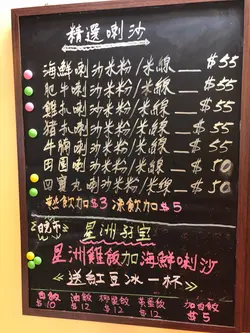 精選喇沙
海鮮喇沙米粉/米線__$55
肥牛喇沙米粉/米線__$55
雞扒喇沙米粉/米線__$55
豬扒喇沙米粉/米線__$55
牛腩喇沙米粉/米線__$55
田園喇沙米粉/米線__$50
四寶丸喇沙米粉/米線__$50
熱飲加$3 凍飲加$5
星洲
星洲雞飯加海鮮喇沙
送紅豆冰一杯
白飯 油飯
$10 $12 $12 $12 $5